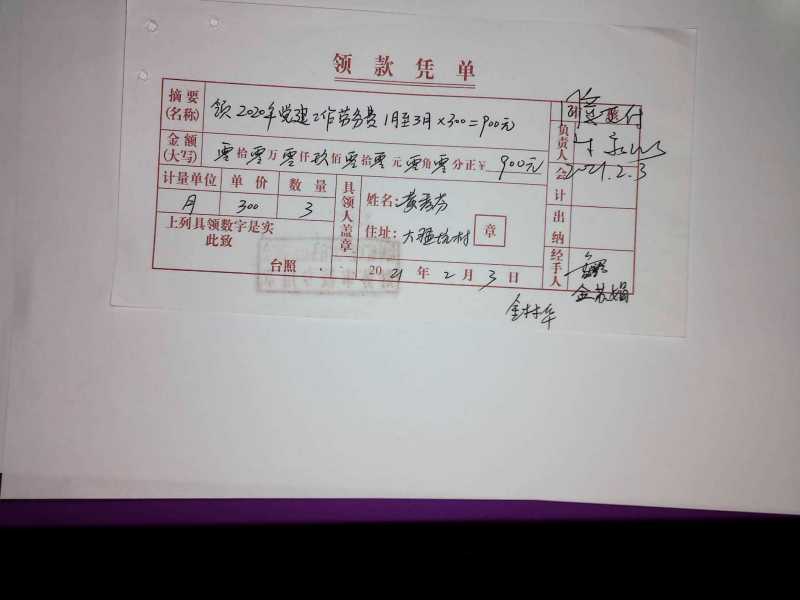 领款凭单
摘要(名称) 领2020年党建工作劳务费1月至3月×300=900元
金额(大写) 零拾零万零仟玖佰零拾零元零角零分正¥900元
计量单位 单价 数量
月 300 3
上列具领数字是实
此致
台照
具领人盖章
姓名:
住址: 大 坑村
章
2021年2月3日
负责人
2021.2.3
会计
出纳
经手人